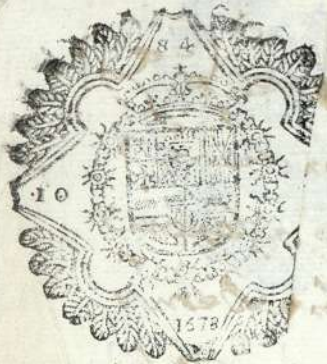 84
10
1678